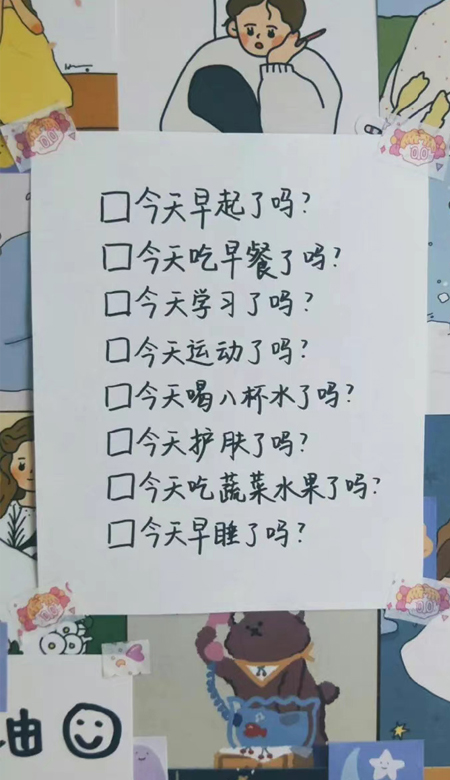 □今天早起了吗?
□今天吃早餐了吗?
□今天学习了吗?
□今天运动了吗?
□今天喝八杯水了吗?
□今天护肤了吗?
□今天吃蔬菜水果了吗?
□今天早睡了吗?
油